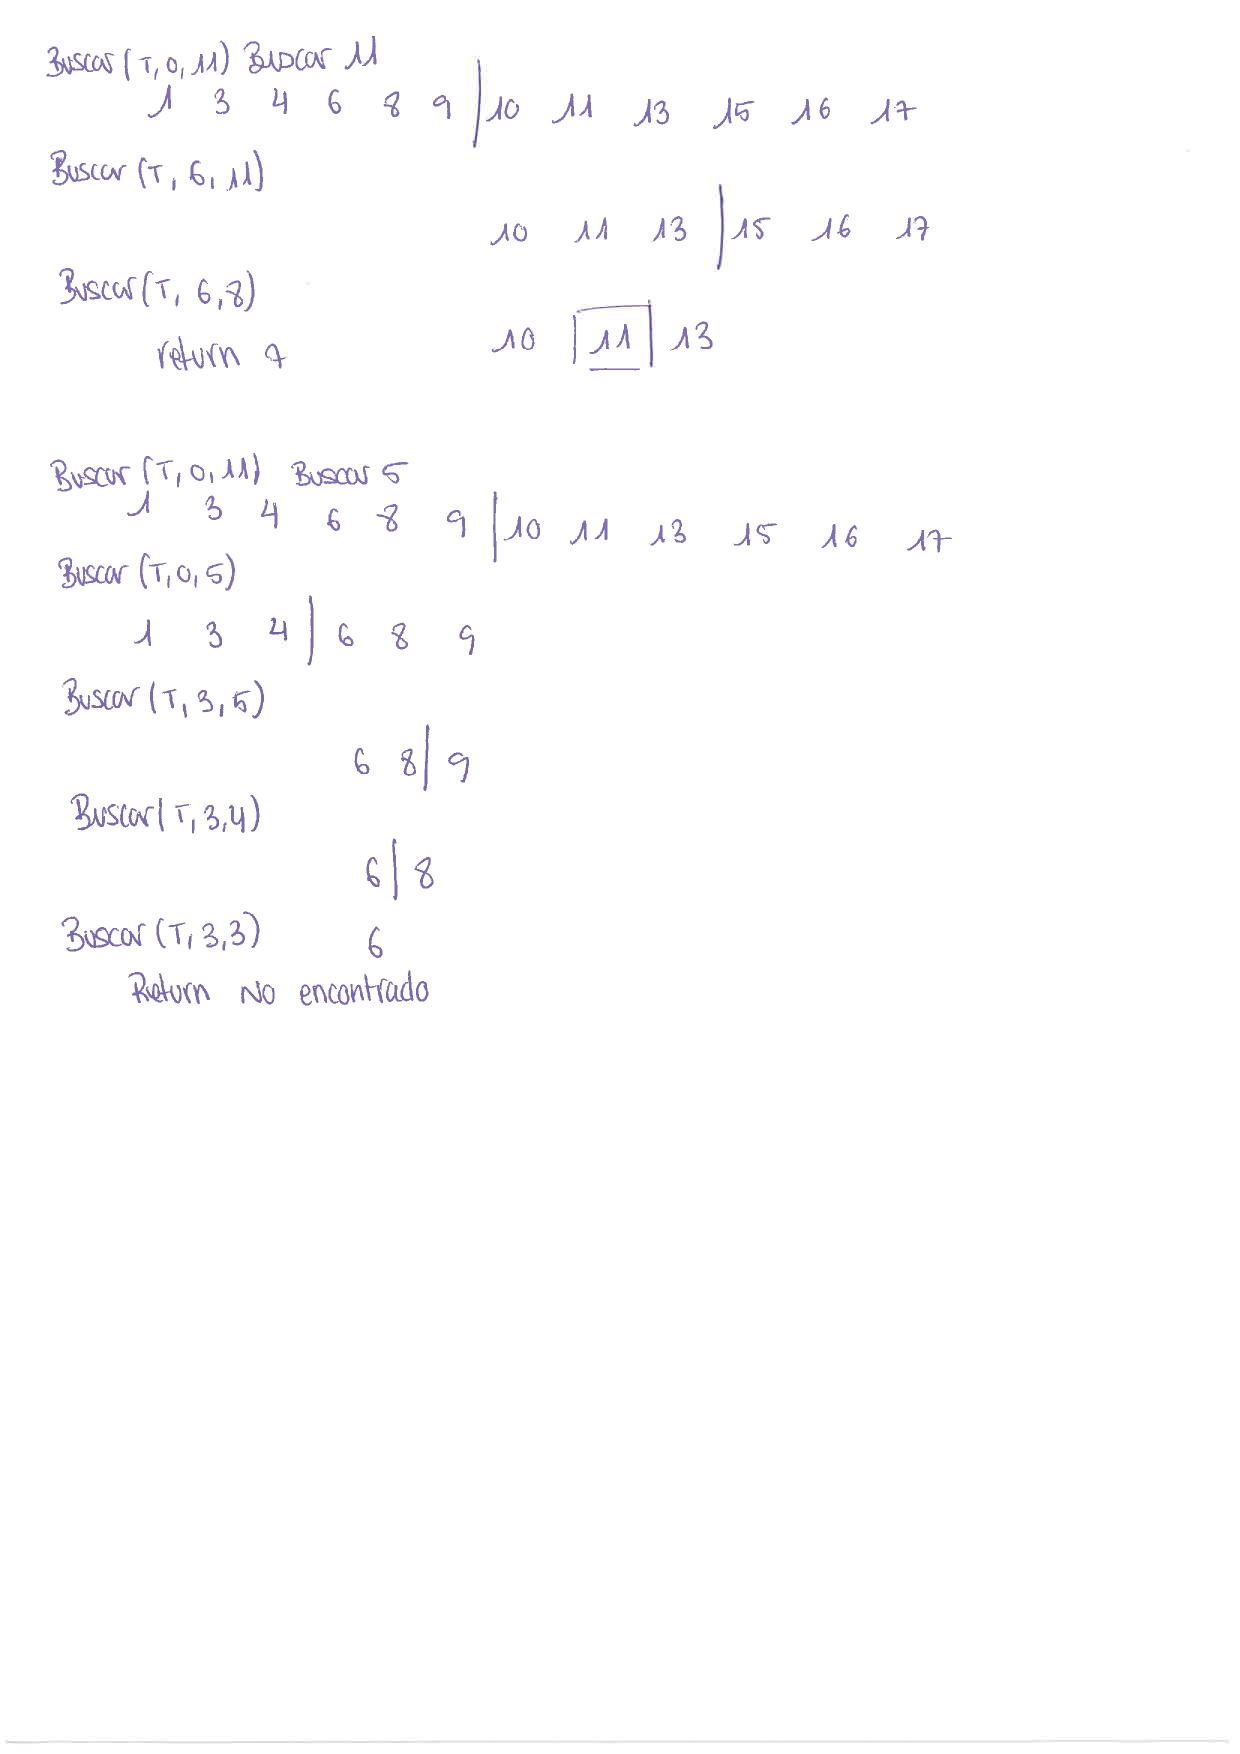 Buscar (T, 0, 11) Buscar 11
1 3 4 6 8 9 | 10 11 13 15 16 17
Buscar (T, 6, 11)
10 11 13 | 15 16 17
Buscar (T, 6, 8)
10 11 13
return 7
Buscar (T, 0, 11) Buscar 5
1 3 4 6 8 9 | 10 11 13 15 16 17
Buscar (T, 0, 5)
1 3 4 | 6 8 9
Buscar (T, 3, 5)
6 8 | 9
Buscar (T, 3, 4)
6 | 8
Buscar (T, 3, 3) 6
Return No encontrado